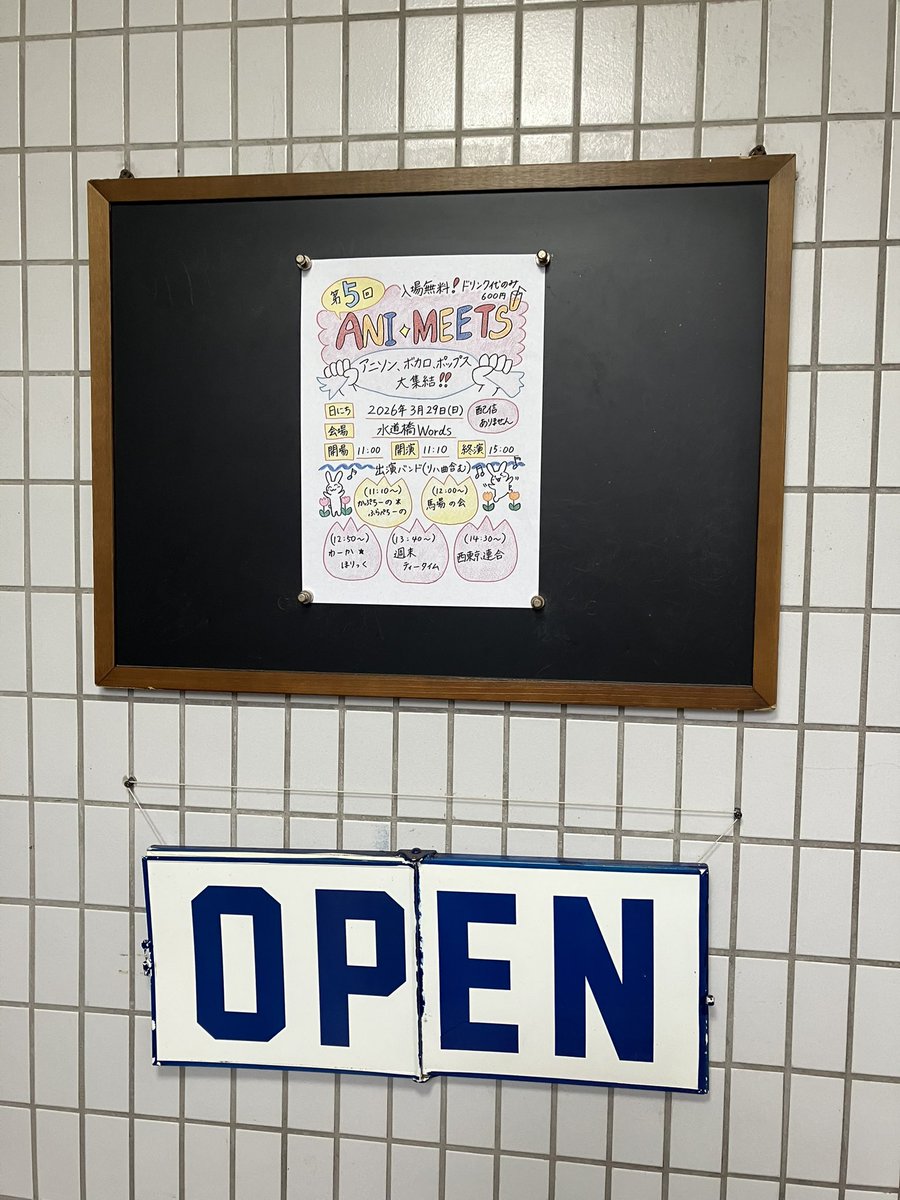 第5回
入場無料!ドリンク代のみ
600円
ANI・MEETS
アニソン、ボカロ、ポップス
大集結!!
日にち 2026年3月29日(日)
配信
ありません
会場 水道橋Words
開場 11:00 開演 11:10 終演 15:00
出演バンド(リハ曲含む)
(11:10~)
かぷちーの★
ふらぺちーの
(12:00~)
馬場の会
(12:50~)
わーか★
ほりっく
(13:40~)
週末
ティータイム
(14:30~)
西東京連合
OPEN